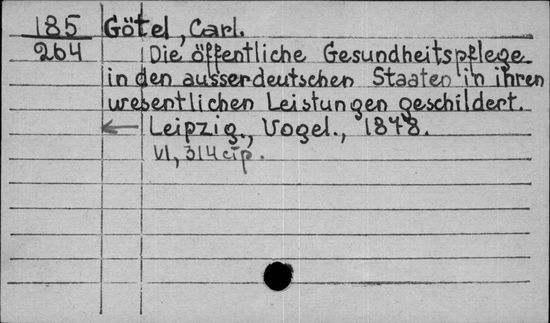 185 Götel, Carl.
264 Die öffentliche Gesundheitspflege
in den ausserdeutschen Staaten in ihren
wesentlichen Leistungen geschildert.
← Leipzig., Vogel., 1878.
VI, 314 стр.